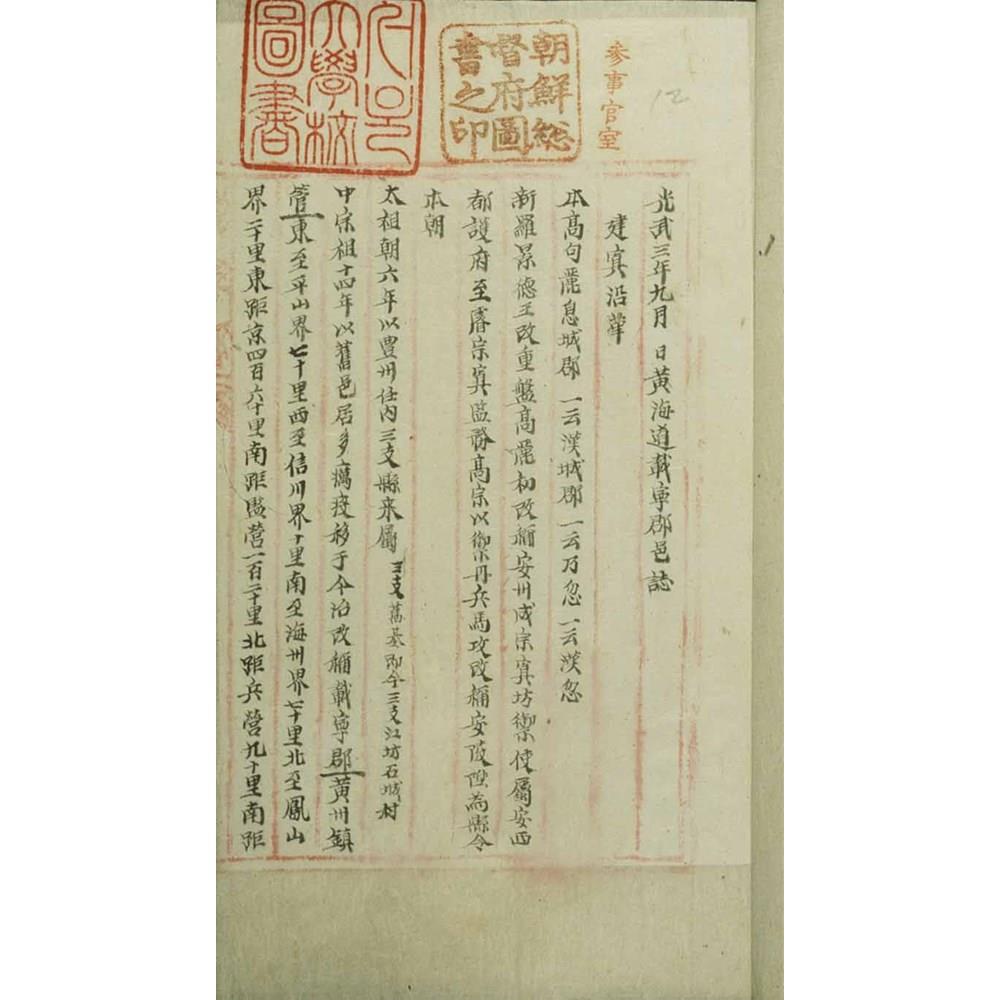 朝鮮總
督府圖
書之印
大學校
圖書
參事官室
12
光武三年九月 日黃海道載寧郡邑誌
建寘沿革
本高句麗息城郡一云漢城郡一云乃忽一云漢忽
新羅景德王改重盤高麗初改稱安州成宗寘坊禦使屬安西
都護府至睿宗寘監務高宗以禦丹兵馬攻改稱安陵陞爲縣令
本朝
太祖朝六年以豊州任內三支縣來屬 三支舊基卽今三支江坊石城村
中宗祖十四年以舊邑居多癘疫移于今治改稱載寧郡黃州鎭
管東至平山界七十里西至信川界十里南至海州界七十里北至鳳山
界二十里東距京四百六十里南距監營一百二十里北距兵營九十里南距